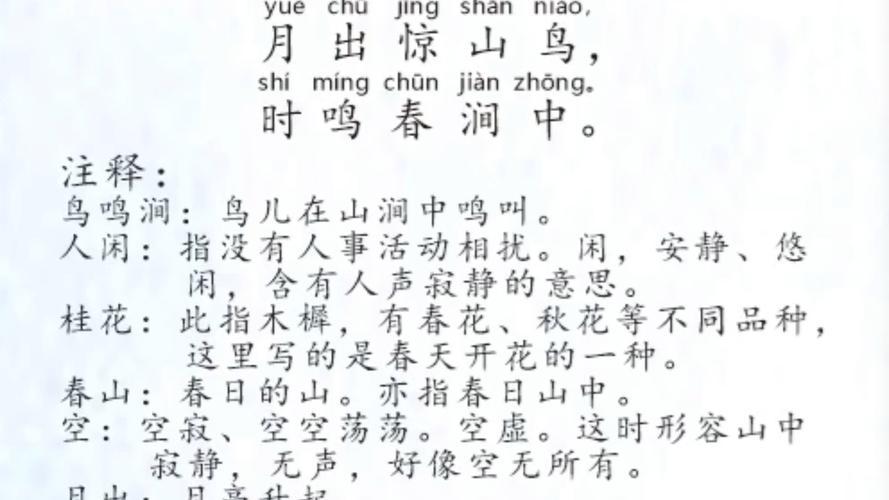 yuè chū jīng shān niǎo,
月出惊山鸟，
shí míng chūn jiàn zhōng。
时鸣春涧中。
注释：
鸟鸣涧：鸟儿在山涧中鸣叫。
人闲：指没有人事活动相扰。闲，安静、悠
闲，含有人声寂静的意思。
桂花：此指木樨，有春花、秋花等不同品种，
这里写的是春天开花的一种。
春山：春日的山。亦指春日山中。
空：空寂、空空荡荡。空虚。这时形容山中
寂静，无声，好像空无所有。
月出：月亮升起